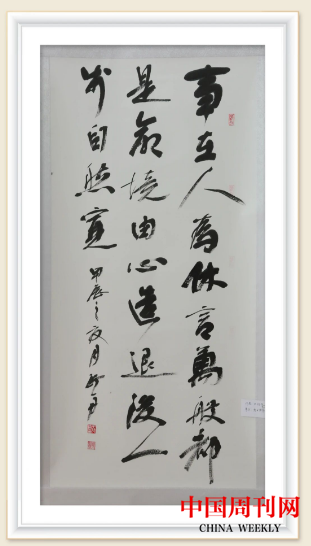 事在人為休言萬般都
是命境由心造退後一
步自然寬
甲辰之夏月
中国周刊网
CHINA WEEKLY